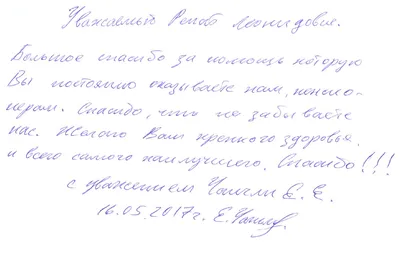 Уважаемый Леонидович.
Большое спасибо за помощь которую
Вы постоянно оказываете нам, пенсио-
нерам. Спасибо, что не забываете
нас. Желаю Вам крепкого здоровья
и всего самого наилучшего. Спасибо!!!
с уважением Е. Е.
16.05.2017 г.